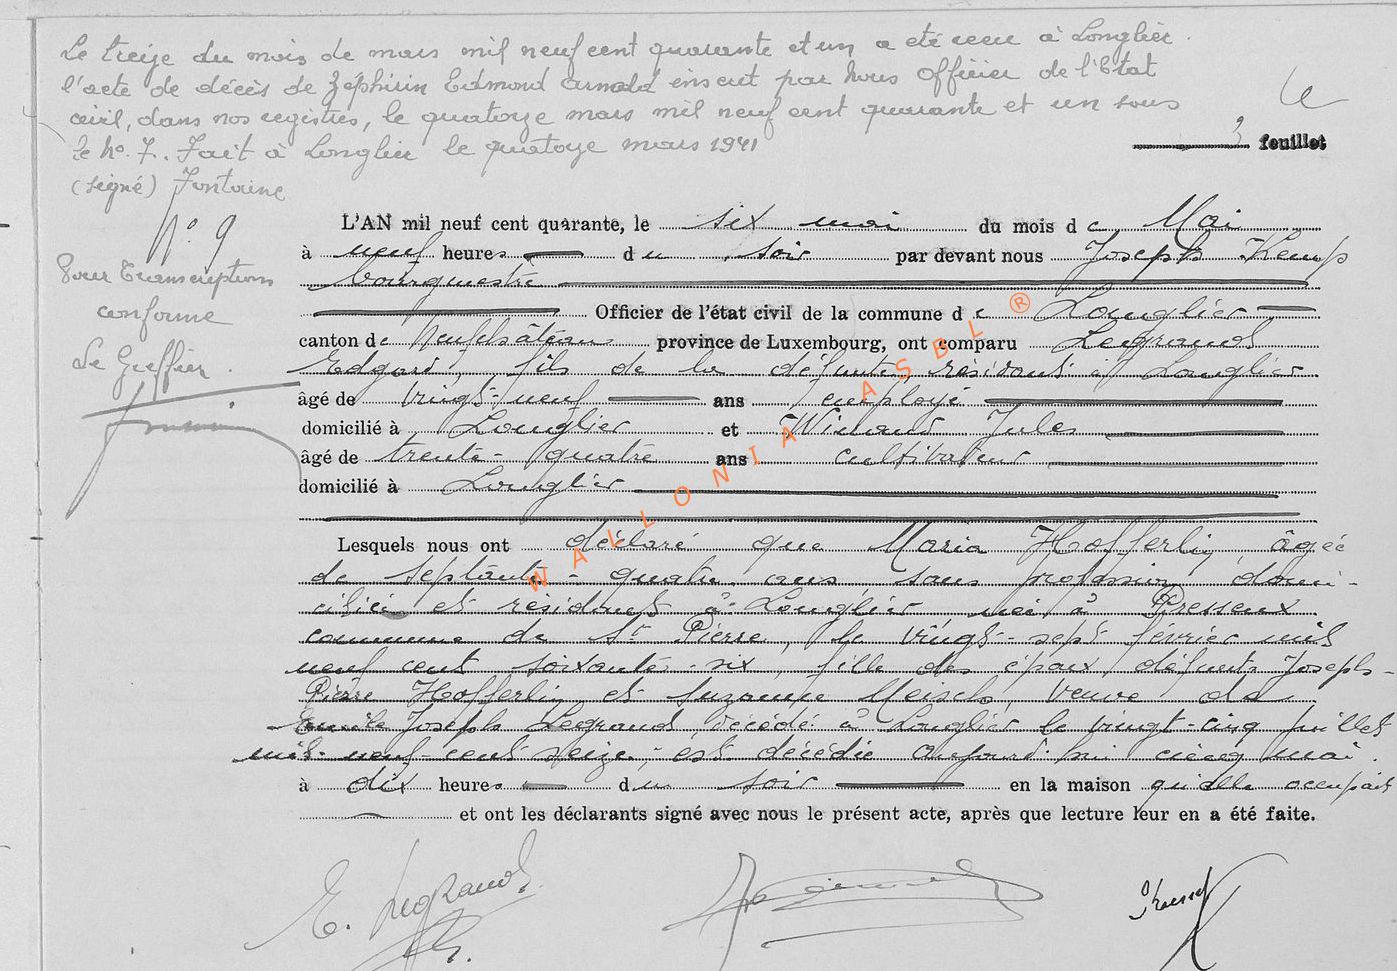 Le treize du mois de mars mil neuf cent quarante et un a été reçu à Longlier.
l'acte de décès de Zéphirin Edmond Arnold inscrit par nous Officier de l'Etat
civil, dans nos registres, le quatorze mars mil neuf cent quarante et un sous
le no. 7. Fait à Longlier le quatorze mars 1941
(signé) Fontaine
3 feuillet
No. 9
Pour transcription
conforme
Le Greffier.
L'AN mil neuf cent quarante, le six mai du mois de Mai
à neuf heures du soir par devant nous Joseph Kemp
bourgmestre
Officier de l'état civil de la commune de Longlier
canton de Neufchâteau province de Luxembourg, ont comparu Legrand
Edgard, fils de la défunte, résidant à Longlier
âgé de vingt-neuf ans employé
domicilié à Longlier et Winand Jules
âgé de trente-quatre ans cultivateur
domicilié à Longlier
Lesquels nous ont déclaré que Maria Hofferlin âgée
de septante-quatre ans sans profession domi-
ciliée et résidant à Longlier née à Presseux
commune de St Pierre, le vingt-sept février mil
neuf cent soixante-six, fille des époux, défunts Joseph-
Pierre Hofferlin et Suzanne Meisch, veuve de
Emile Joseph Legrand, décédé à Longlier le vingt-cinq juillet
mil-neuf-cent seize, est décédée aujourd'hui cinq mai
à dix heures du soir en la maison qu'elle occupait
et ont les déclarants signé avec nous le présent acte, après que lecture leur en a été faite.
E. Legrand
WALLONIA ASBL ®